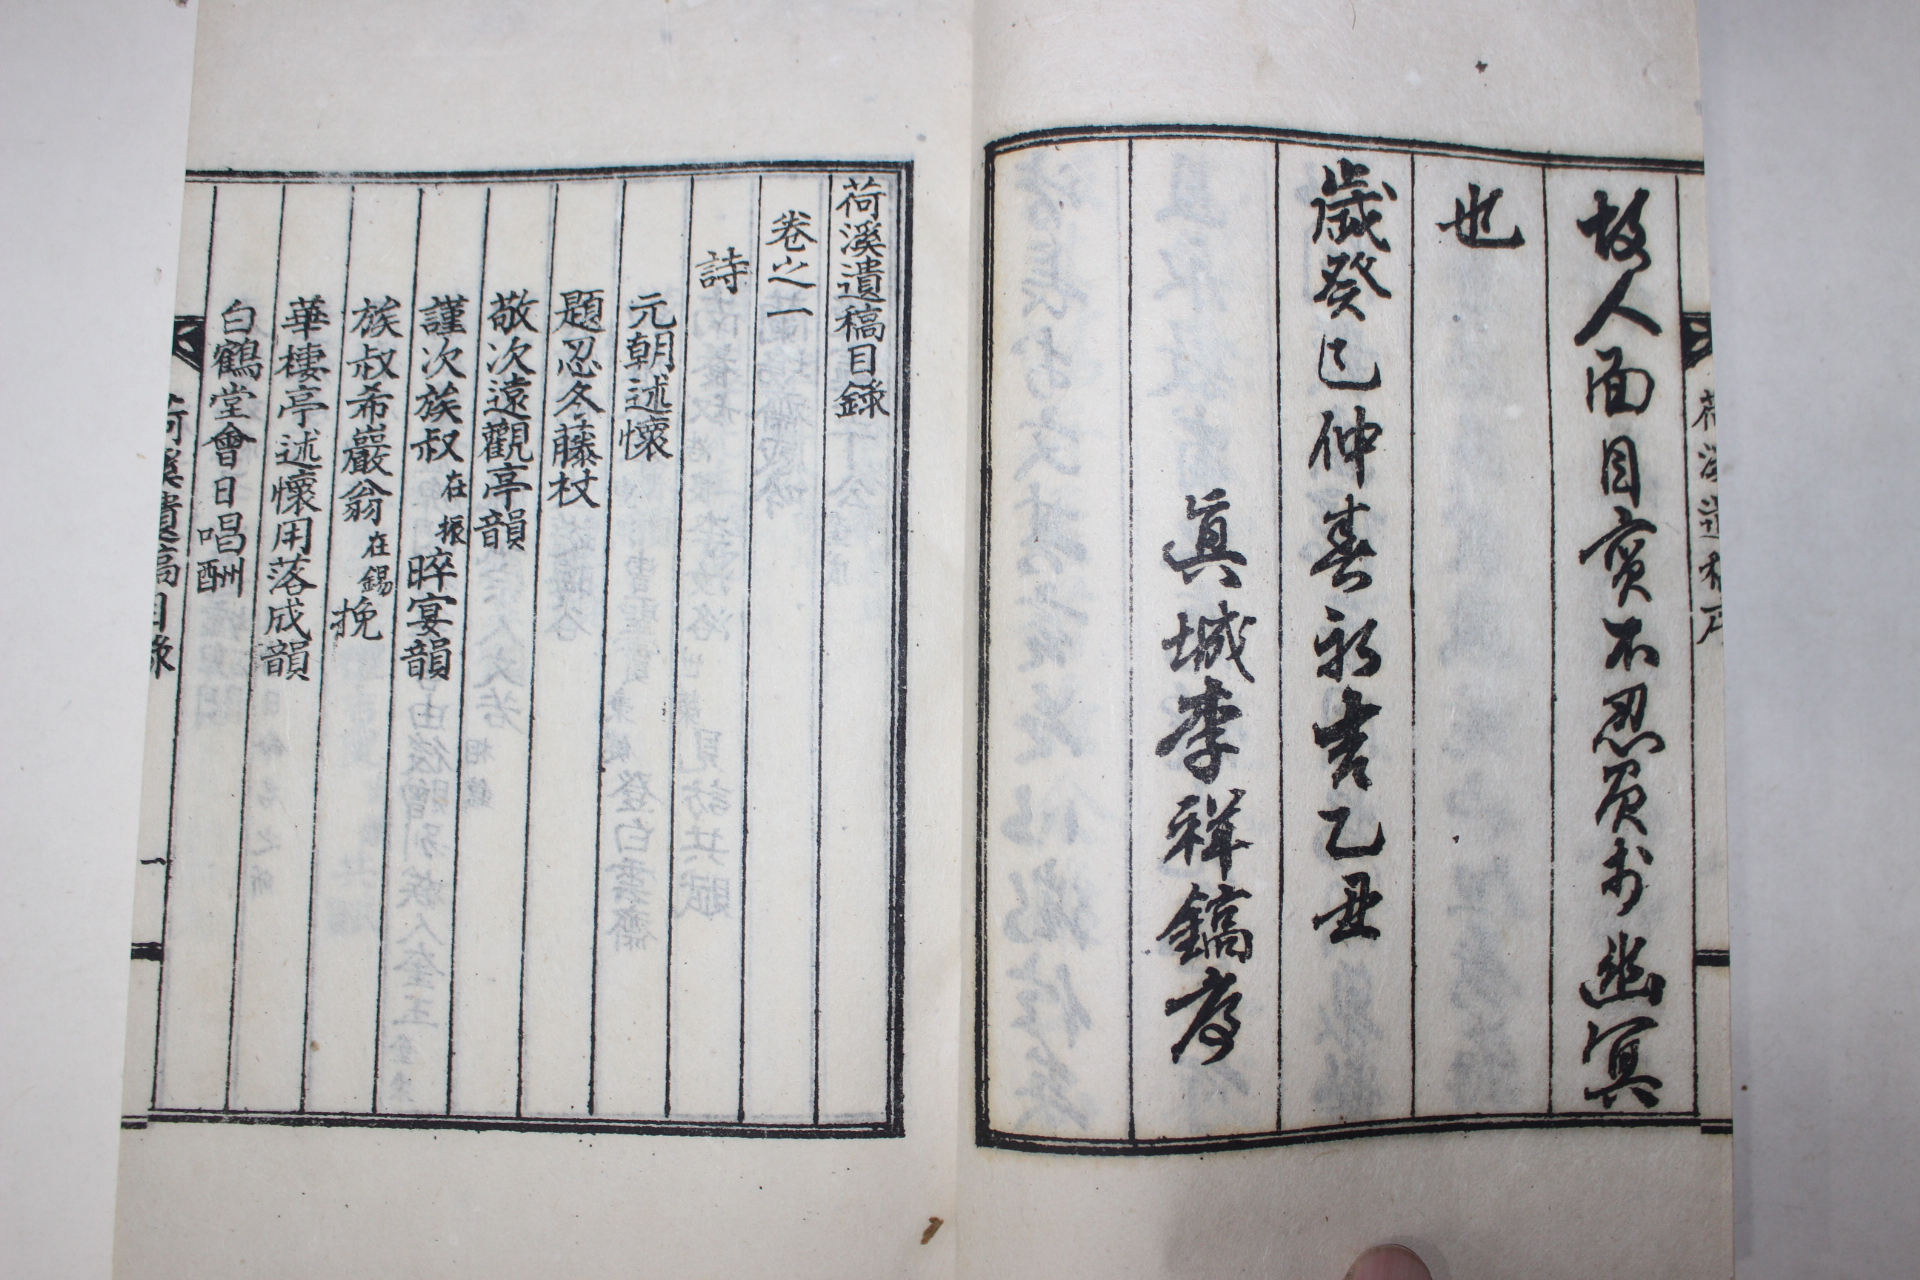 荷溪遺稿序
故人面目實不忍負於幽冥
也
歲癸巳仲春初吉乙丑
眞城李祥鎬序
荷溪遺稿目錄
卷之一
詩
元朝述懷
題忍冬藤杖
敬次遠觀亭韻
謹次族叔在振晬宴韻
族叔希巖翁在錫挽
華棲亭述懷用落成韻
白鶴堂會日唱酬
荷溪遺稿目錄
一